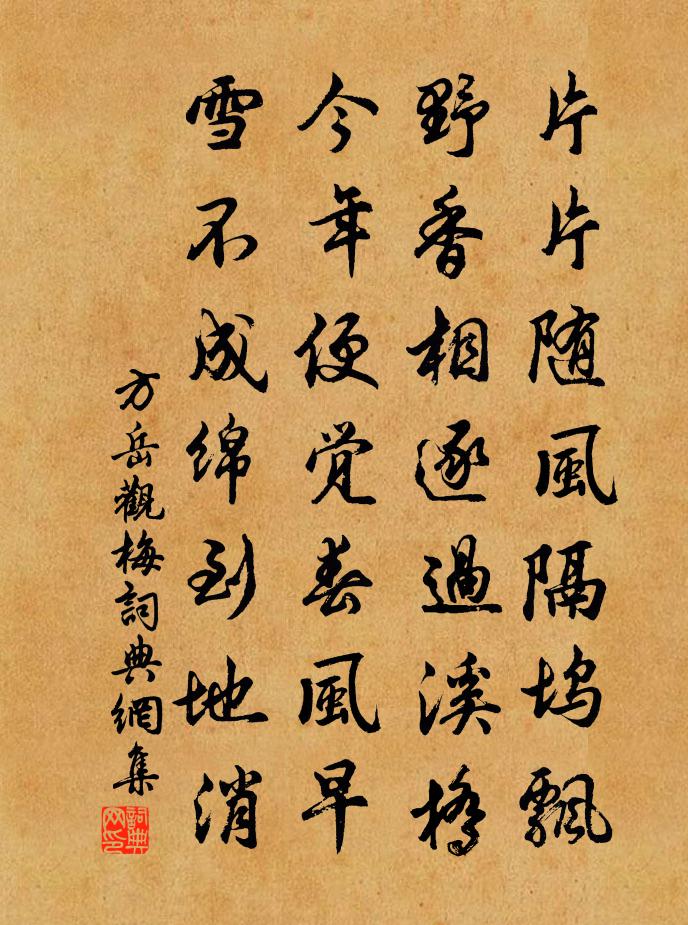 片片随風隔坞飄
野香相逐過溪橋
今年便觉春風早
雪不成绵到地消
方岳觀梅詞典網集
詞典网印